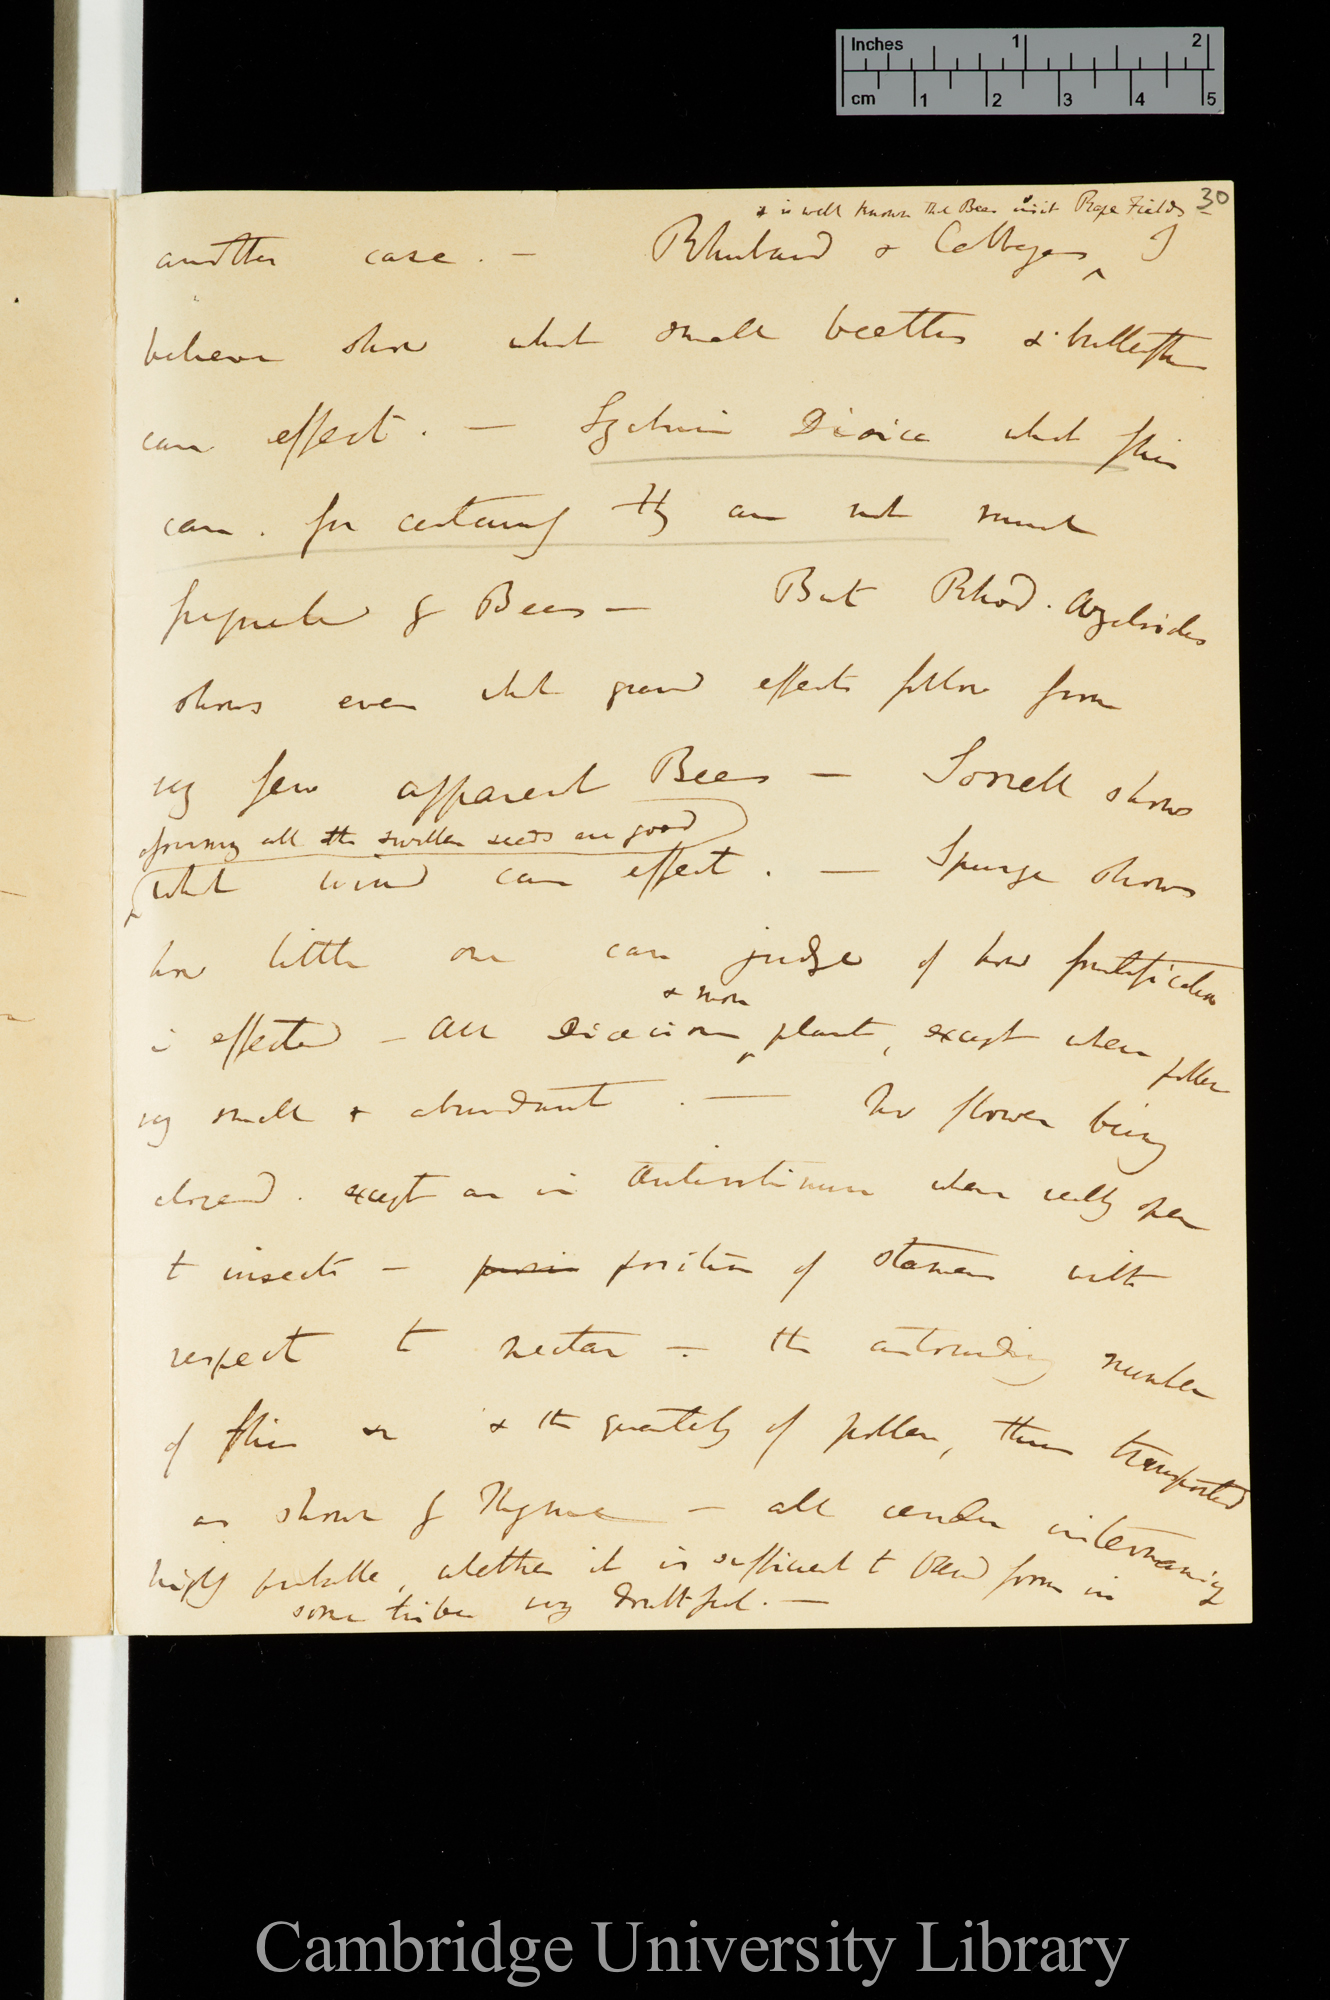 Inches 1 2
cm 1 2 3 4 5
30
& is well known that Bees visit Rape Fields
another case. — Rhubarb & Cabbages I
believe show what small beetles & butterflies
can effect. — Lychnis Dioica what flies
can. for certainly they are not much
frequented by Bees — But Rhod. Azaloides
shows even what grand effects follow from
very few apparent Bees — Sorrell shows
assuming all the swollen seeds are good
what wind can effect. — Spurge shows
how little one can judge of how fructification
is effected — All Dioecious plants, except when pollen
& mon
very small & abundant. — No flower being
closed. except as in Antirrhinum when really open
to insects — position of stamens with
respect to nectar — the astounding number
of flies & the quantity of pollen, thus transported
as shown by Thyme — all render intermarriage
highly probable, whether it is sufficient to blend forms in
some tribes very doubtful. —
Cambridge University Library